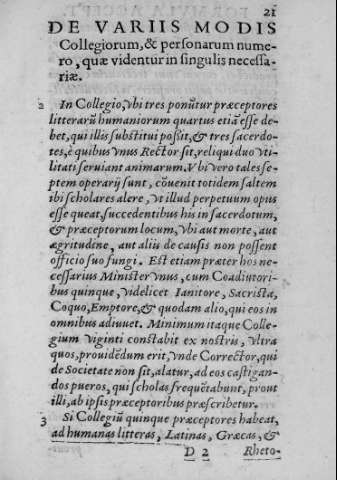 21
DE VARIIS MODIS
Collegiorum, & personarum nume-
ro, quæ videntur in singulis necessa-
riæ.
2 In Collegio, vbi tres ponūtur præceptores
litterarū humaniorum quartus etiā esse de-
bet, qui illis substitui possit, & tres sacerdo-
tes, è quibus vnus Rector sit, reliqui duo vti-
litati seruiant animarum. Vbi vero tales se-
ptem operarij sunt, cōuenit totidem saltem
ibi scholares alere, vt illud perpetuum opus
esse queat, succedentibus his in sacerdotum,
& præceptorum locum, vbi aut morte, aut
ægritudine, aut aliis de causis non possent
officio suo fungi. Est etiam præter hos ne-
cessarius Minister vnus, cum Coadiutori-
bus quinque, videlicet Ianitore, Sacrista,
Coquo, Emptore, & quodam alio, qui eos in
omnibus adiuuet. Minimum itaque Colle-
gium viginti constabit ex nostris, vltra
quos, prouidēdum erit, vnde Corrector, qui
de Societate non sit, alatur, ad eos castigan-
dos pueros, qui scholas frequētabunt, prout
illi, ab ipsis præceptoribus præscribetur.
3 Si Collegiū quinque præceptores habeat,
ad humanas litteras, Latinas, Græcas, &
D 2 Rheto-